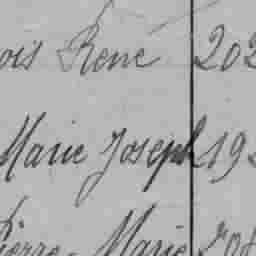 ois René 202
Marie Joseph 19
Pierre Marie 208